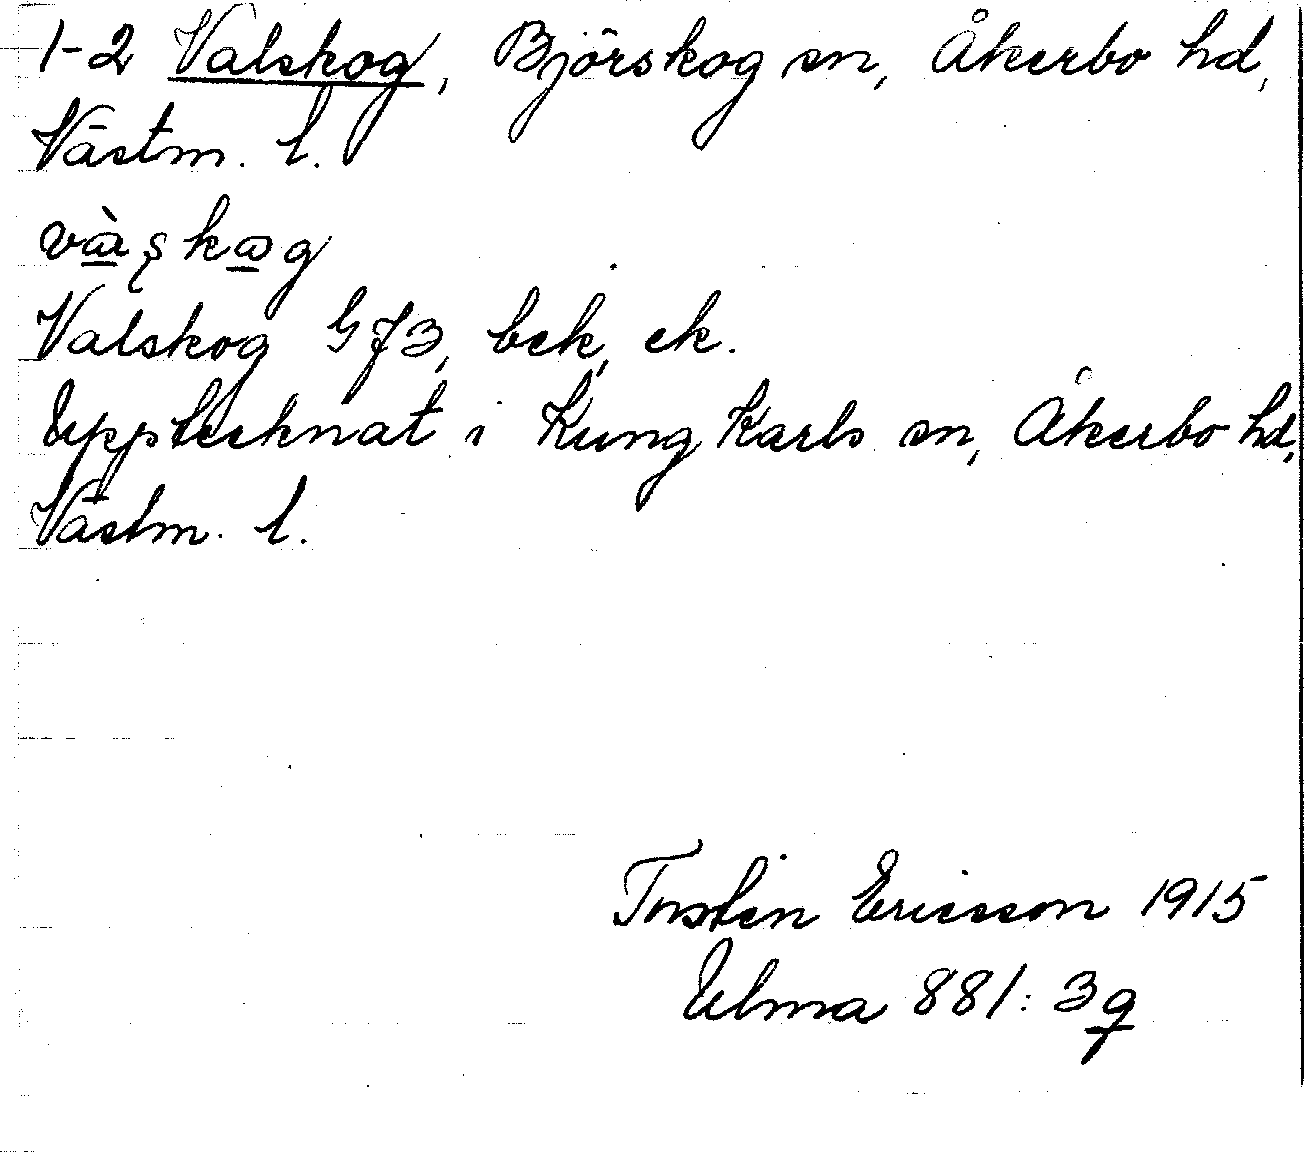 1-2 Valskog, Björskog sn, Åkerbo hd,
Västm. l.
và̱şka̱g
Valskog G73, bek, ek.
Upptecknat i Kung Karls sn, Åkerbo hd,
Västm. l.
Torsten Ericsson 1915
Ulma 881:3g